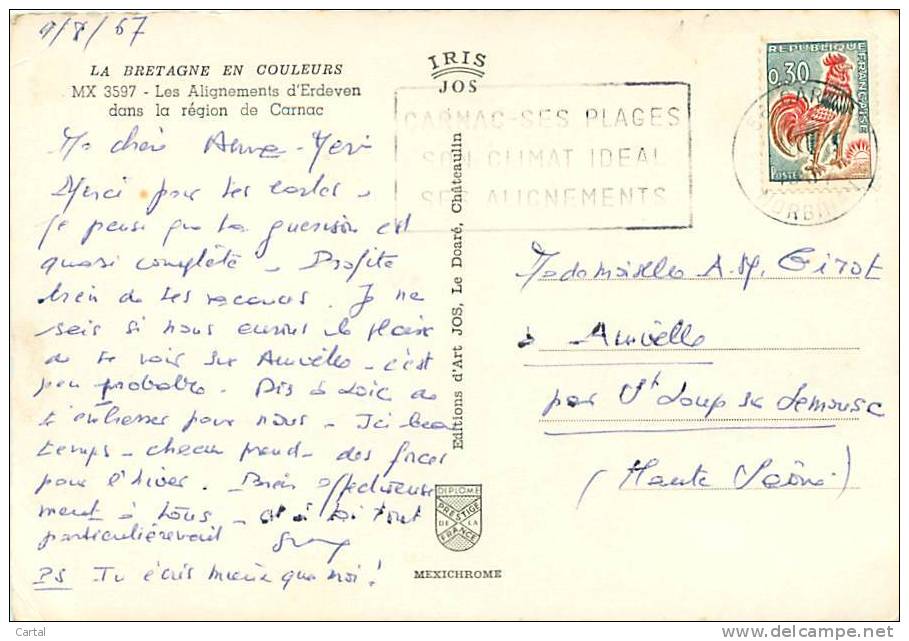 9/8/67
LA BRETAGNE EN COULEURS
MX 3597 - Les Alignements d'Erdeven
dans la région de Carnac
IRIS
JOS
Ma chère Anne-Marie
Merci pour tes cartes -
je pense que ta guérison est
quasi complète - Profite
bien de tes vacances. Je ne
sais si nous aurons le plaisir
de te voir sur - c'est
peu probable. Dis à Loïc de
t'embrasser pour nous - Ici beau
temps - chacun prend des forces
pour l'hiver. Bien affectueuse
ment à tous - et à toi tout
particulièrement
PS Tu écris mieux que moi !
Editions d'Art JOS, Le Doaré, Châteaulin
CARNAC-SES PLAGES
SON CLIMAT IDEAL
SES ALIGNEMENTS
REPUBLIQUE FRANÇAISE
0,30
POSTES
MORBIHAN
Mademoiselle A.M. Girot
à
par St Loup sur Semouse
(Haute Saône)
DIPLOME
PRESTIGE
DE LA
FRANCE
MEXICHROME
Cartal
delcampe.net